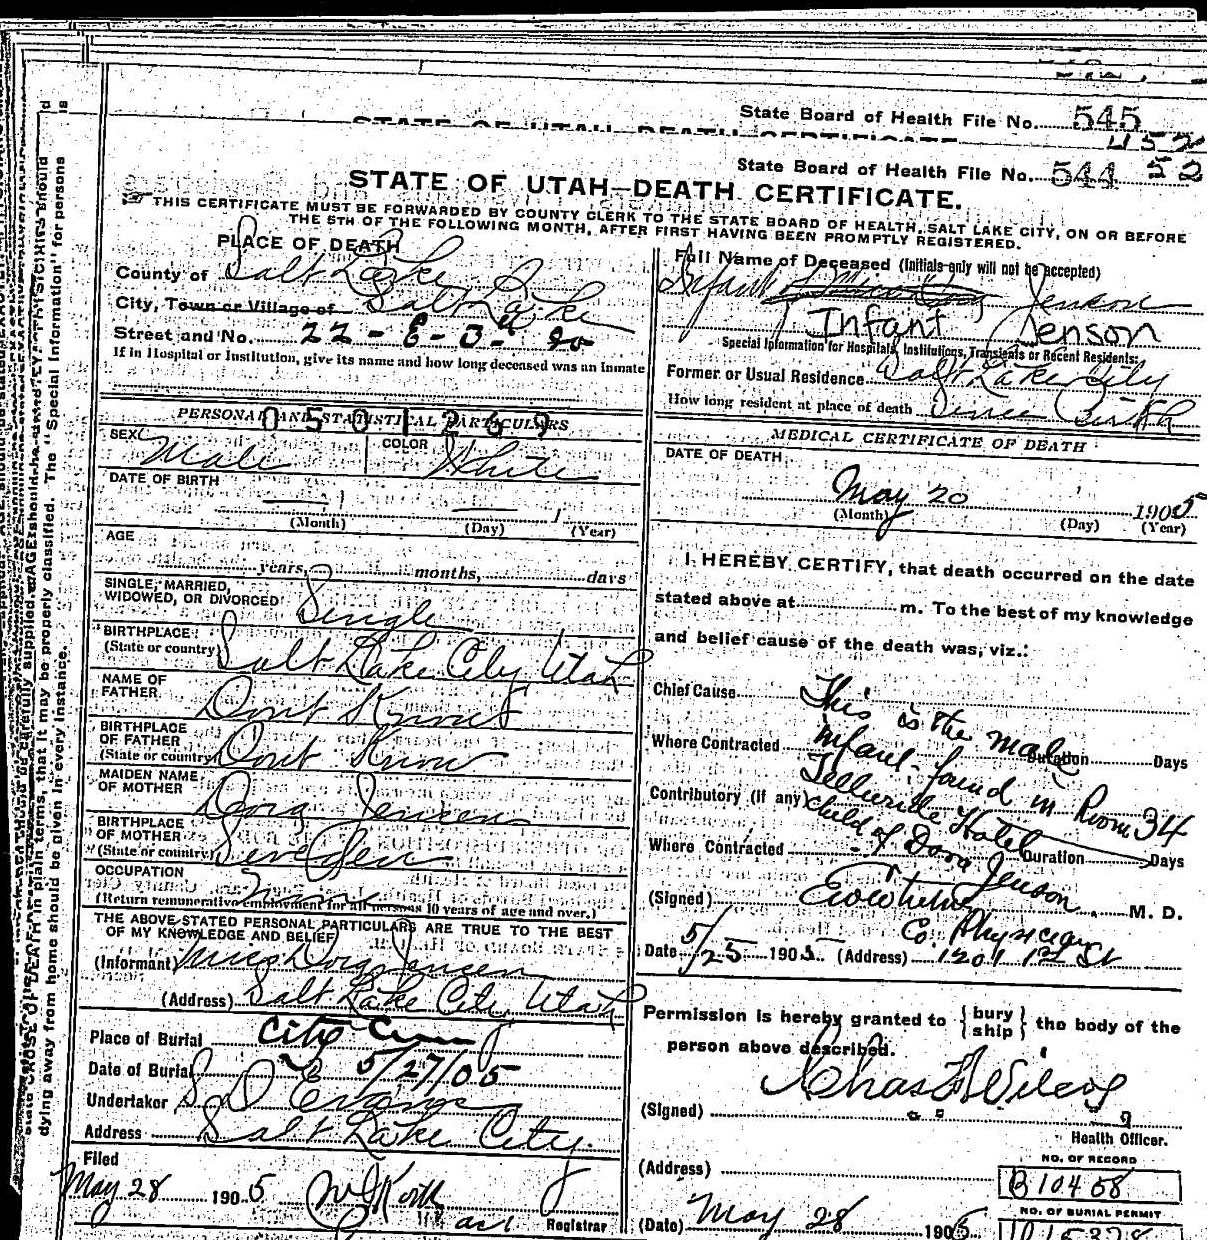 State Board of Health File No. 545
452
State Board of Health File No. 544 52
STATE OF UTAH—DEATH CERTIFICATE.
THIS CERTIFICATE MUST BE FORWARDED BY COUNTY CLERK TO THE STATE BOARD OF HEALTH, SALT LAKE CITY, ON OR BEFORE
THE 5TH OF THE FOLLOWING MONTH, AFTER FIRST HAVING BEEN PROMPTLY REGISTERED.
PLACE OF DEATH
County of Salt Lake
City, Town or Village of Salt Lake
Street and No. 22 - E - 3d So
If in Hospital or Institution, give its name and how long deceased was an inmate
Full Name of Deceased (Initials only will not be accepted)
Infant Jenson
Infant Jenson
Special Information for Hospitals, Institutions, Transients or Recent Residents:
Former or Usual Residence Salt Lake City
How long resident at place of death Since Birth
PERSONAL AND STATISTICAL PARTICULARS
0501269
SEX Male COLOR White
DATE OF BIRTH
(Month) (Day) 1 (Year)
AGE
years, months, days
SINGLE, MARRIED,
WIDOWED, OR DIVORCED Single
BIRTHPLACE
(State or country) Salt Lake City Utah
NAME OF
FATHER Dont Know
BIRTHPLACE
OF FATHER
(State or country) Dont Know
MAIDEN NAME
OF MOTHER Dora Jensen
BIRTHPLACE
OF MOTHER
(State or country) Sweden
OCCUPATION
(Return remunerative employment for all persons 10 years of age and over.)
THE ABOVE STATED PERSONAL PARTICULARS ARE TRUE TO THE BEST
OF MY KNOWLEDGE AND BELIEF
(Informant) Miss Dora Jensen
(Address) Salt Lake City Utah
Place of Burial City Cem
Date of Burial 5/27/05
Undertaker S D Evans
Address Salt Lake City
Filed
May 28 1905
Registrar
MEDICAL CERTIFICATE OF DEATH
DATE OF DEATH
May 20 1905
(Month) (Day) (Year)
I HEREBY CERTIFY, that death occurred on the date
stated above at m. To the best of my knowledge
and belief cause of the death was, viz.:
Chief Cause This is the male
Duration Days
Where Contracted infant found in Room 34
Contributory (if any) Telluride Hotel
Duration Days
Where Contracted child of Dora Jenson
(Signed) M. D.
Co. Physician
Date 5/25 1905 (Address) 1201 1st St
Permission is hereby granted to {bury ship} the body of the
person above described.
(Signed) Chas
Health Officer.
(Address)
NO. OF RECORD
B10458
(Date) May 28 1905
NO. OF BURIAL PERMIT
dying away from home should be given in every instance.
state CAUSE OF DEATH in plain terms, that it may be properly classified. The "Special Information" for persons